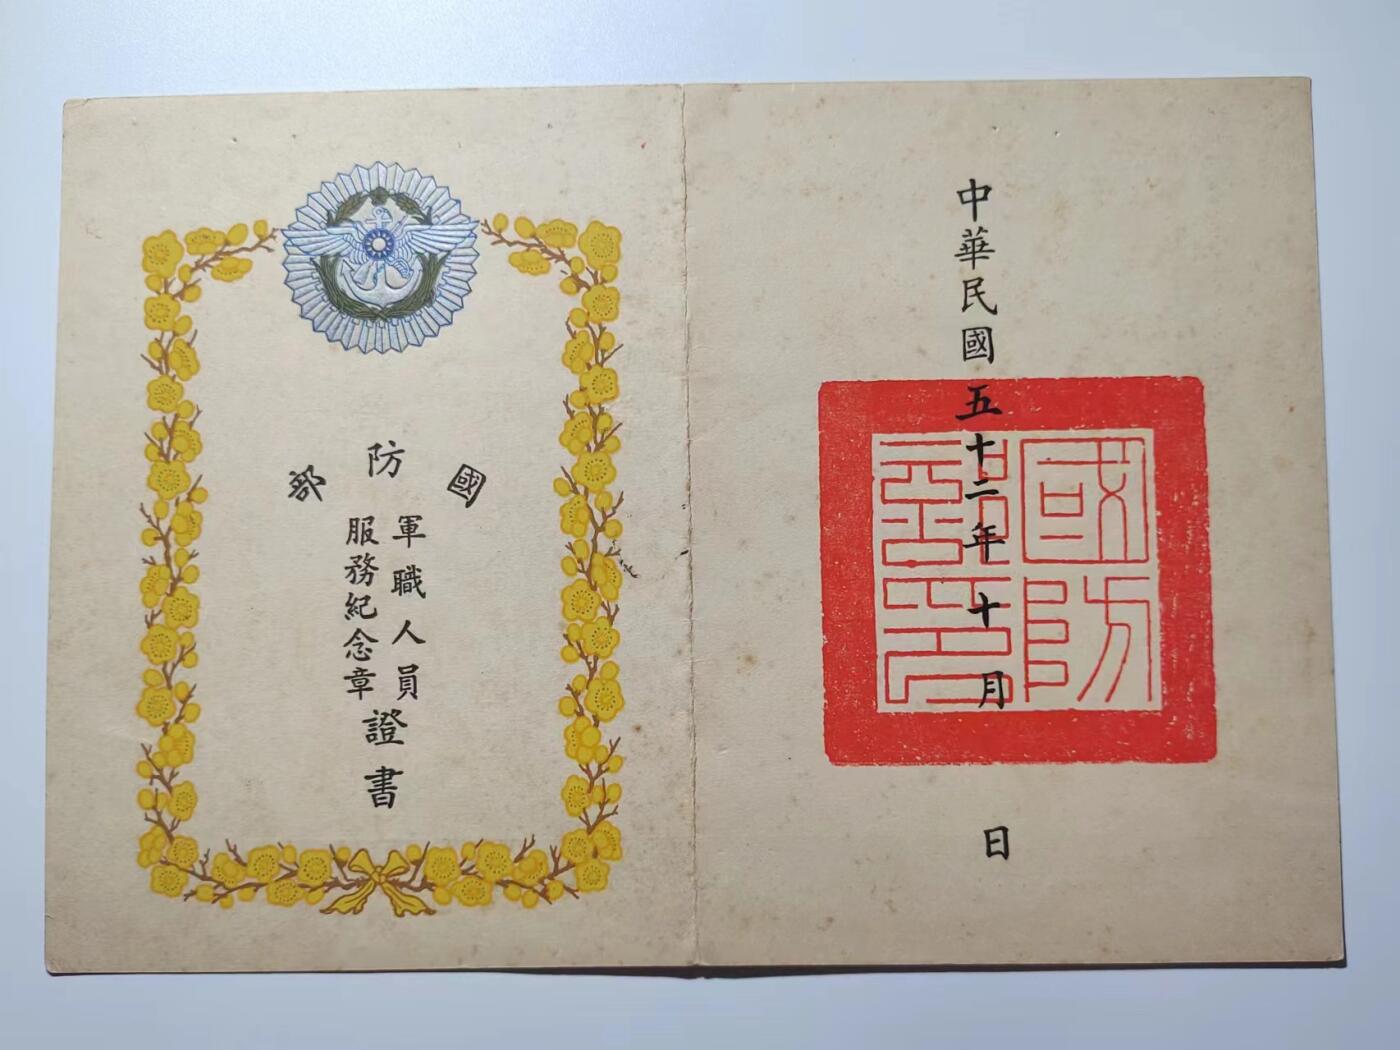 國防部
軍職人員
服務紀念章
證書
中華民國五十二年十月 日
國防部印